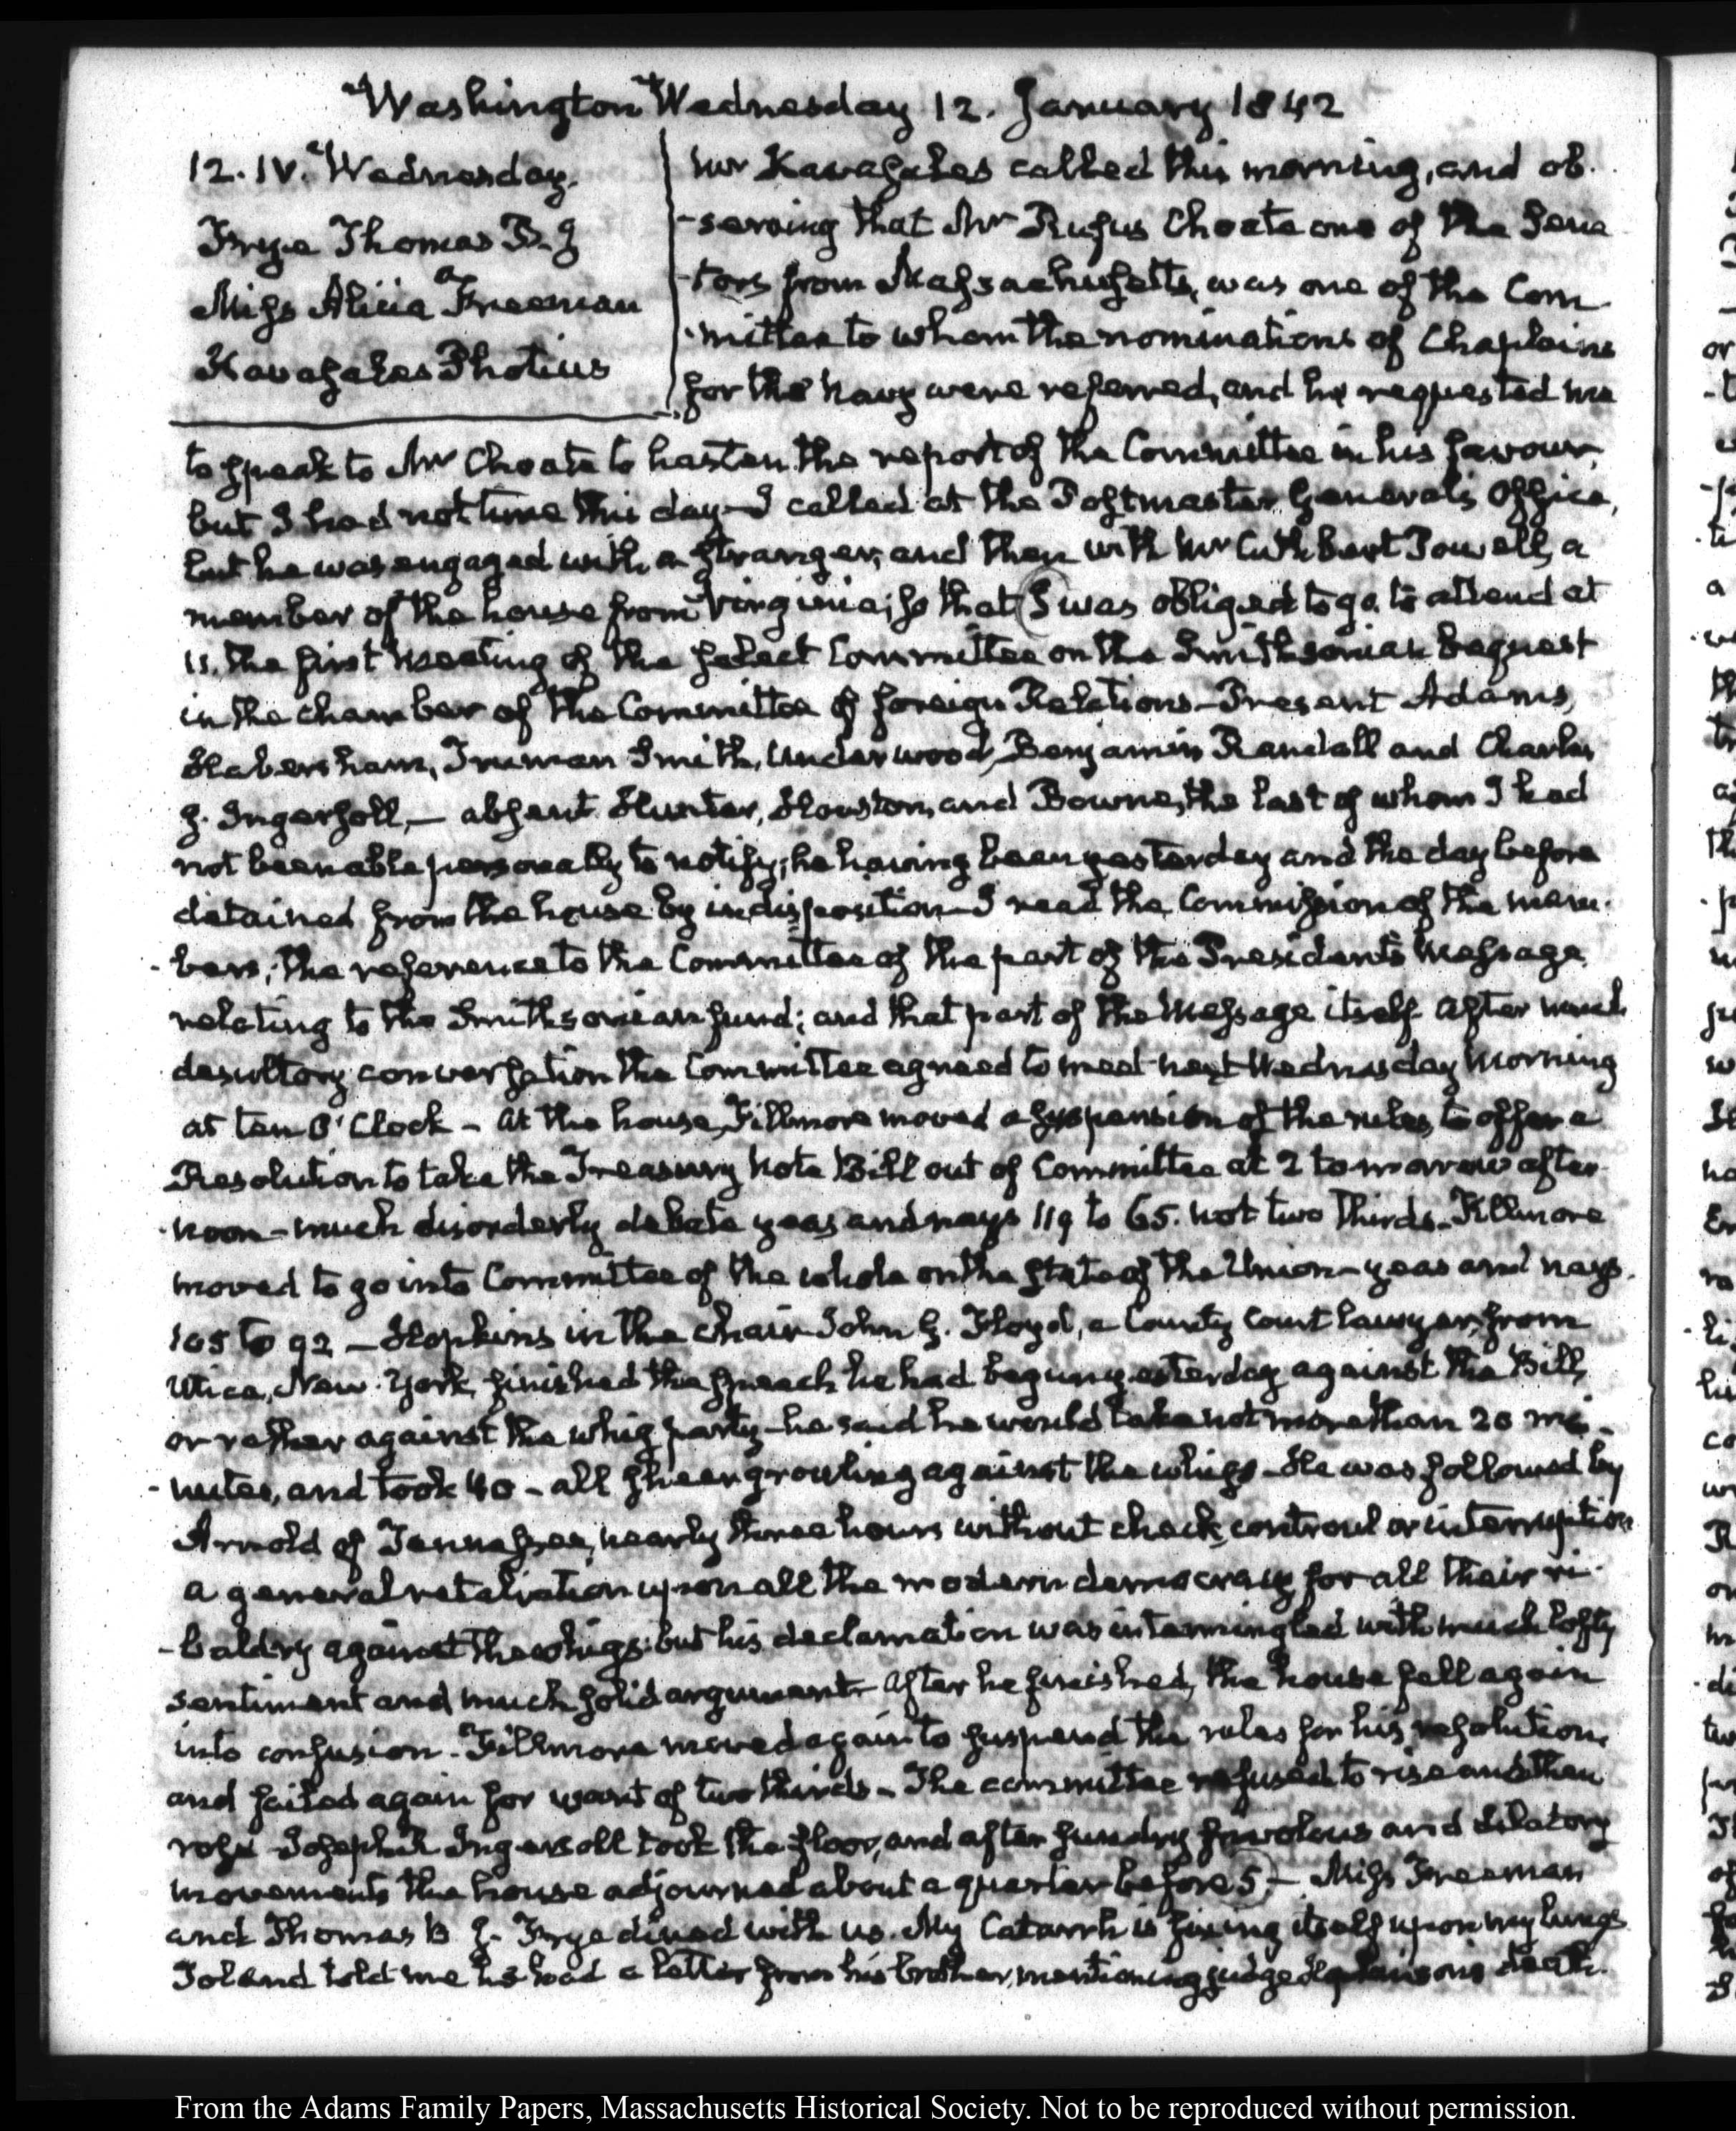 Washington Wednesday 12. January 1842
12. IV. Wednesday.
Frye Thomas B. J
Miss Alicia Freeman
Kavasales Photius
Mr Kavasales called this morning, and ob-
-serving that Mr Rufus Choate one of the Sena
-tors from Massachusetts, was one of the Com
-mittee to whom the nominations of Chaplains
for the Navy were referred, and he requested me
to speak to Mr Choate to hasten the report of the Committee in his favour,
but I had not time this day— I called at the Postmaster General's Office,
but he was engaged with a stranger, and then with Mr Cuthbert Powell, a
member of the house from Virginia; so that I was obliged to go to attend at
11. the first meeting of the select Committee on the Smithsonian bequest
in the chamber of the Committee of foreign Relations— Present Adams,
Habersham, Truman Smith, Underwood, Benjamin Randall and Charles
J. Ingersoll,— absent Hunter, Houston, and Bowne, the last of whom I had
not been able personally to notify; he having been yesterday and the day before
detained from the house by indisposition— I read the Commission of the mem-
-bers; the reference to the Committee of the part of the President's Message
relating to the Smithsonian fund; and that part of the Message itself After much
desultory conversation the Committee agreed to meet next Wednesday Morning
at ten O'Clock— At the house, Fillmore moved a suspension of the rules, to offer a
Resolution to take the Treasury Note Bill out of Committee at 2 to-morrow after-
-noon— much disorderly debate yeas and nays 119 to 65. not two thirds. Fillmore
moved to go into Committee of the whole on the state of the Union— yeas and nays.
105 to 92— Hopkins in the chair John G. Floyd, a County Court lawyer, from
Utica, New-York, finished the speech he had begun yesterday against the Bill,
or rather against the whig party— he said he would take not more than 20 mi-
-nutes, and took 40— all sheer growling against the whigs— He was followed by
Arnold of Tennessee, nearly three hours without check, controul or interruption
a general retaliation upon all the modern democracy for all their ri-
-baldry against the whigs: but his declamation was intermingled with much lofty
sentiment and much solid argument— After he finished, the house fell again
into confusion— Fillmore moved again to suspend the rules for his resolution,
and failed again for want of two thirds— The committee refused to rise and then
rose Joseph R Ingersoll took the floor, and after sundry frivolous and dilatory
movements the house adjourned about a quarter before 5.— Miss Freeman
and Thomas B J. Frye dined with us. My Catarrh is fixing itself upon my lungs
Toland told me he had a letter from his brother, mentioning judge Hopkinson's death.
From the Adams Family Papers, Massachusetts Historical Society. Not to be reproduced without permission.